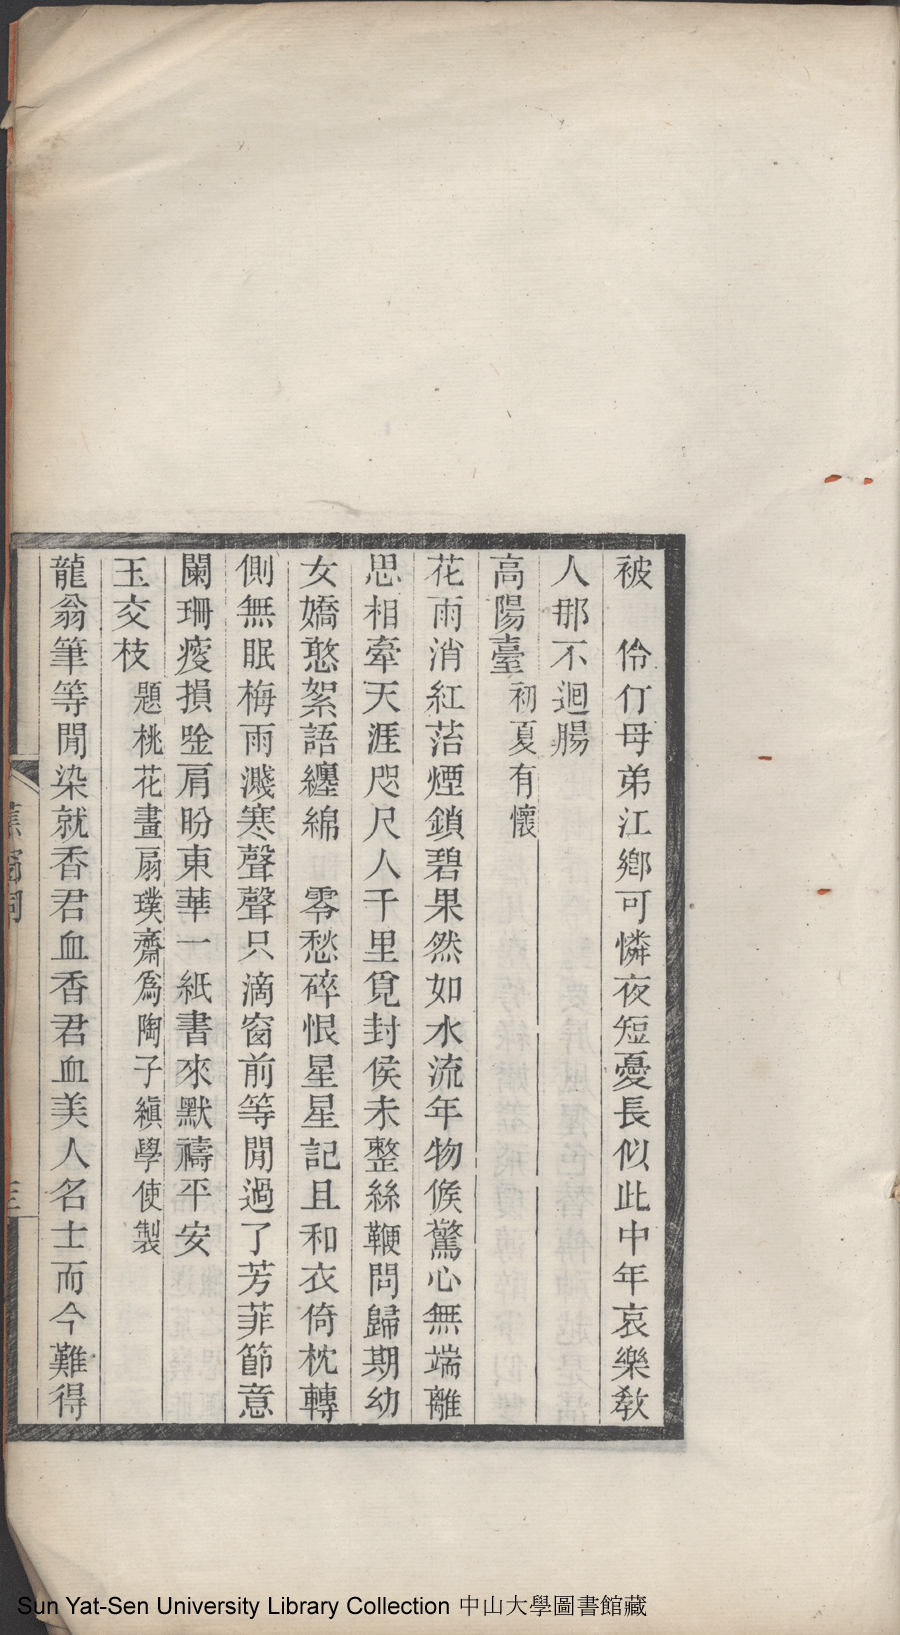 被　伶仃母弟江鄉可憐夜短憂長似此中年哀樂教
人那不迴腸
高陽臺　初夏有懷
花雨消紅萿煙鎖碧果然如水流年物候驚心無端離
思相牽天涯咫尺人千里覓封侯未整絲鞭問歸期幼
女嬌憨絮語纏綿　零愁碎恨星星記且和衣倚枕轉
側無眠梅雨濺寒聲聲只滴窗前等閒過了芳菲節意
闌珊瘦損跧肩盼東華一紙書來默禱平安
玉交枝　題桃花畫扇璞齋爲陶子縝學使製
龍翁筆等閒染就香君血香君血美人名士而今難得
蕉窗詞
三
Sun Yat-Sen University Library Collection 中山大學圖書館藏